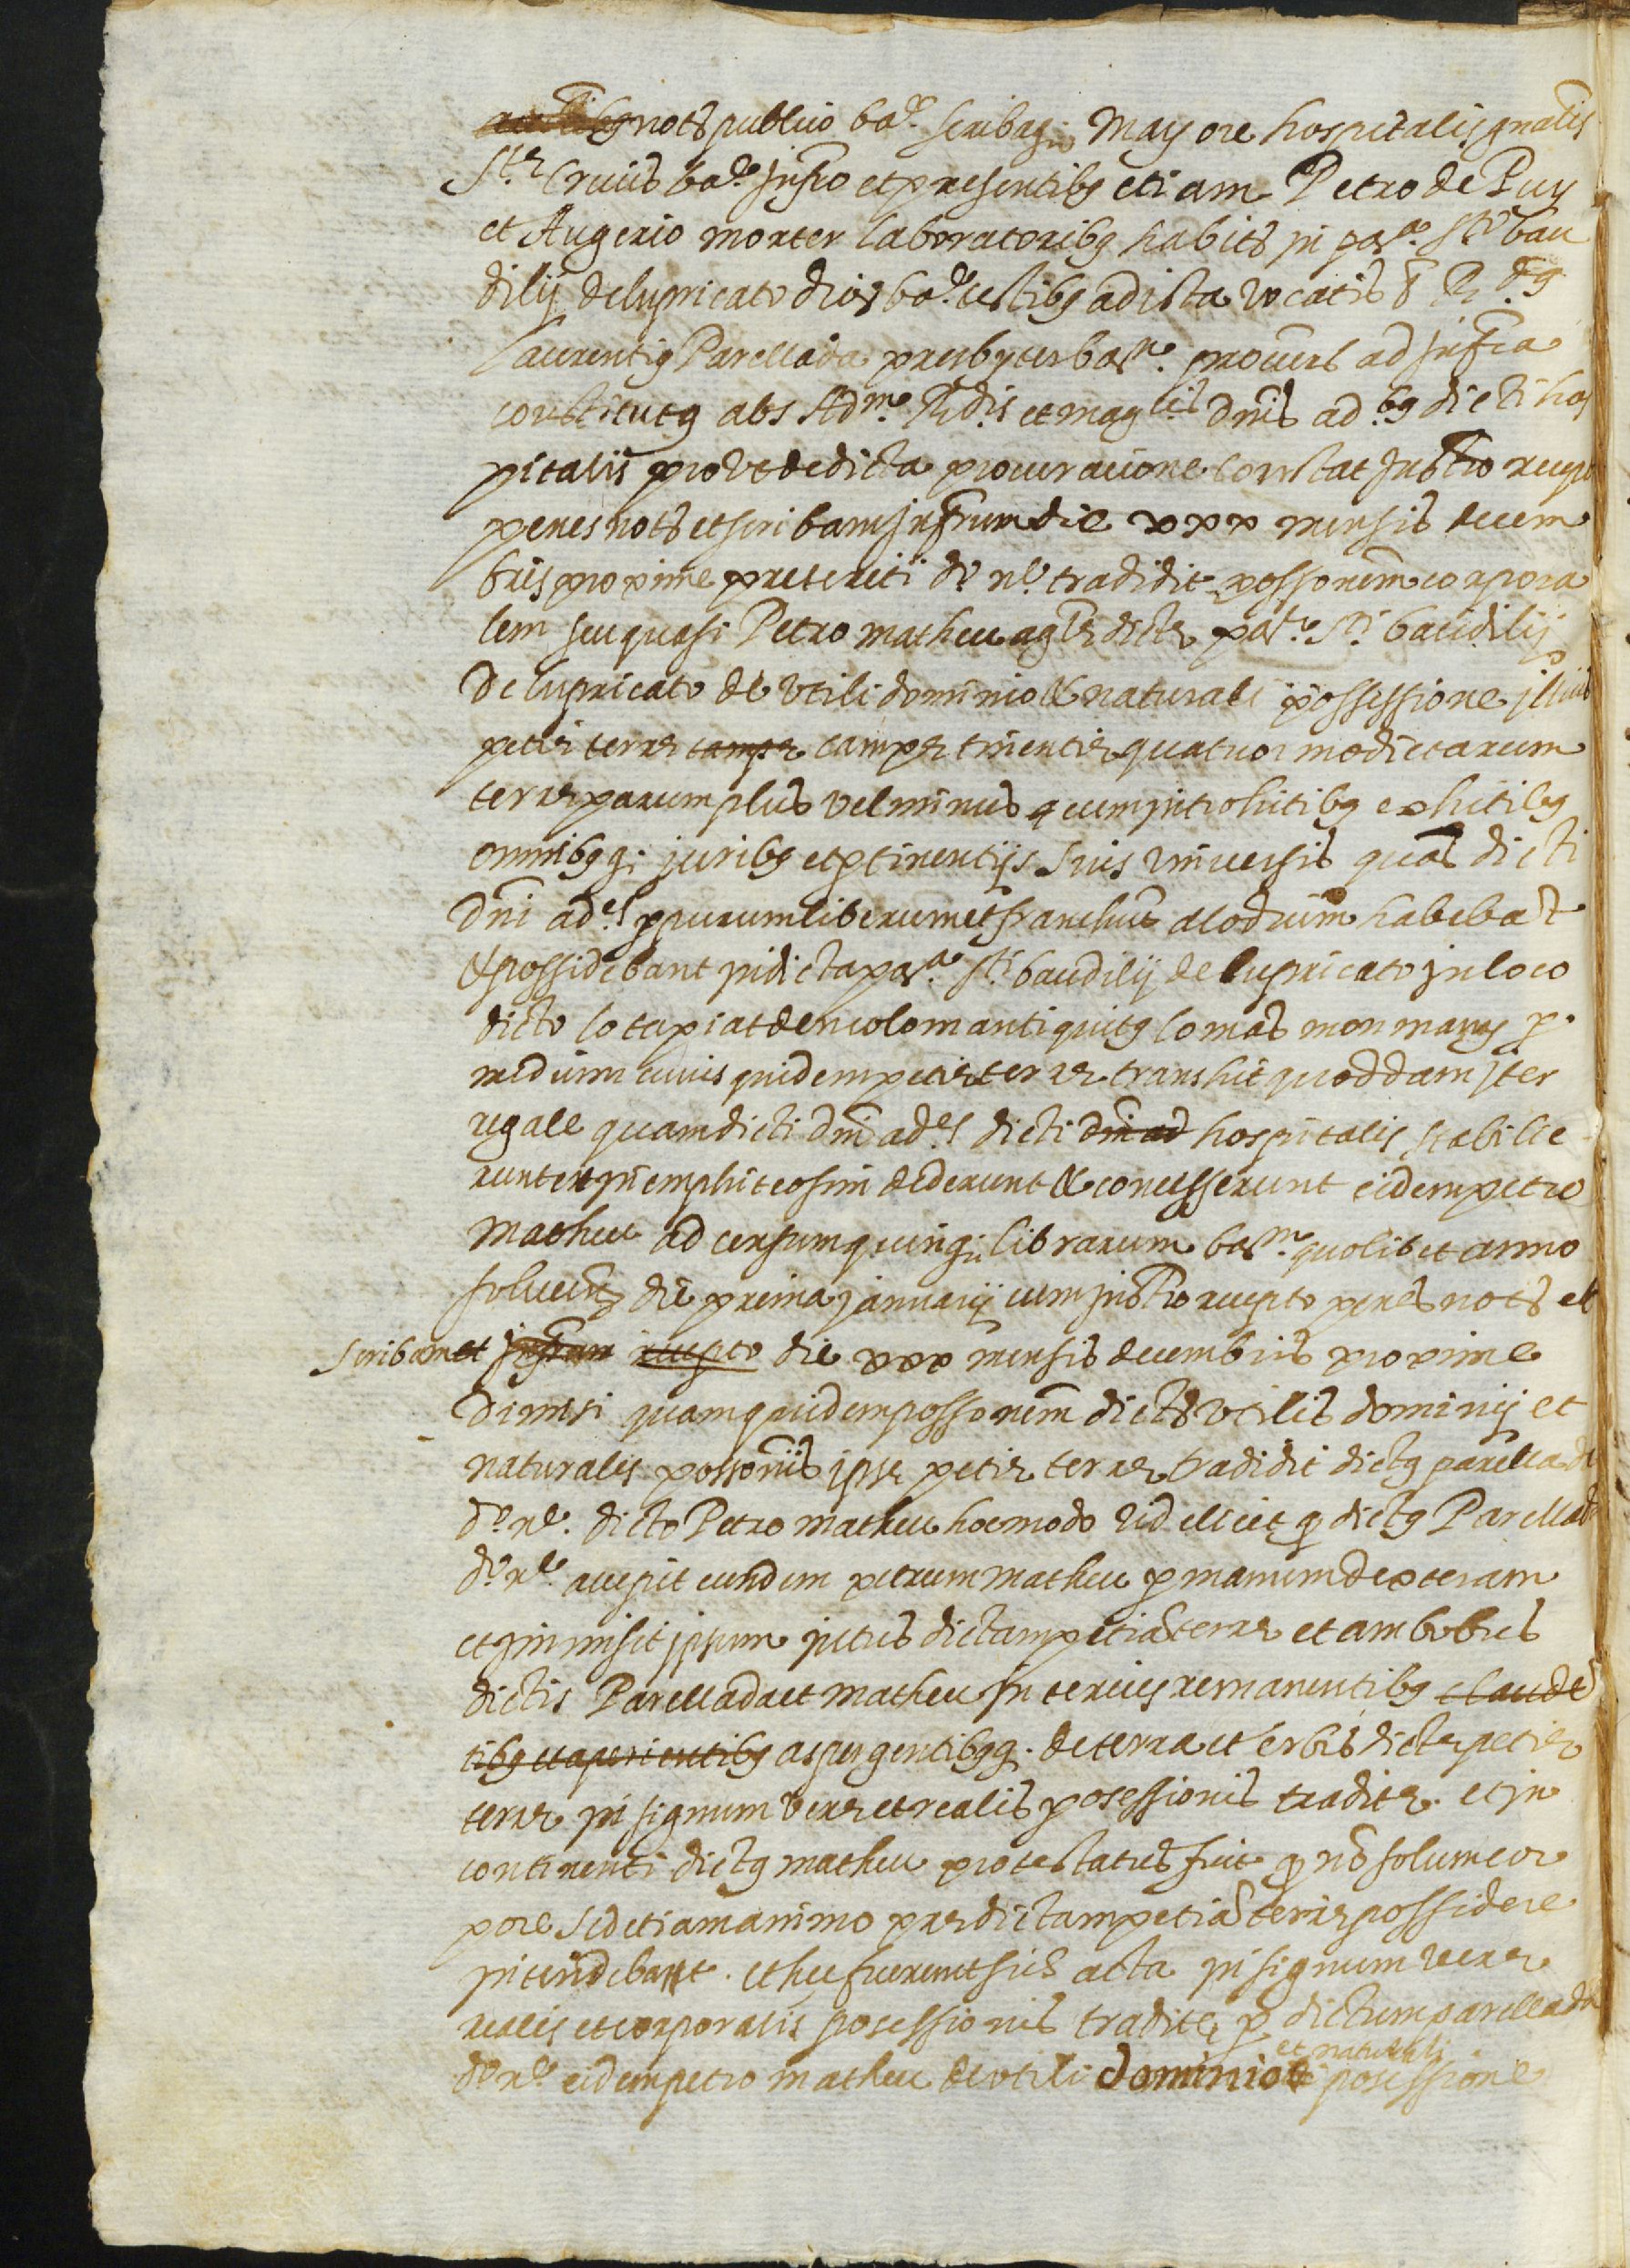 notꝫ publico baꝝ scribaqꝫ Mayore hospitalis gnalis
Stę Crucis baꝝ Infro et presentibꝫ etiam Petro de Puy
et Augerio morter laboratoribꝫ habitꝫ in paꝝ Sti bau
dilij de lupricato dios baꝝ testibꝫ ad ista vocatis Rdꝰ
Laurentiꝰ Parellada presbyter baꝝ procuꝝ ad Infra
constitutꝰ abs Adm. Rdis et magcis dnis ad.bꝫ dicti hos
pitalis prout de dicta procuracione constat Instro recepto
penes notꝫ et scribam Infrum die xxx mensis decem
bris proxime preteriti do ne tradidit possonem corpora
lem seu quasi Petro matheu agle dictę paꝝ Sti baudilij
de lupricato de vtili dominio & naturali possessione illius
petię terrę campę campę tinentię quatuor modietarum
terrę parum plus vel minus cum introhitibꝫ exhitibꝫ
omnibꝫqꝫ juribꝫ et ptinentijs suis vniuersis quas dicti
dni ades p purum liberum et franchum alodium habebāt
& possidebant in dicta paꝝ Sti baudilij de lupricato in loco
dicto lo tapiat den colom antiquitꝰ lo mas monmany p
medium cuius quidem petię terrę transhit quoddam iter
regale quam dicti dni ades dicti dni ad hospitalis stabilie
runt et in emphiteosim dederunt & concesserunt eidem petro
Matheu ad censum quinqꝫ librarum baꝝ quolibet anno
soluenꝝ die prima januarij cum Instro recepto penes notꝫ et
scribam et Infrum recepto die xxx mensis decembris proxime
dimisi quam quidem possonem dictꝫ vtilis dominij et
naturalis possonis ipsę petię terrę tradidit dictꝰ parellada
do ne dicto Petro matheu hoc modo Id est et qꝫ dictꝰ Parellada
do ne accepit eundem petrum matheu p manum dexteram
et inmisit ipsum intus dictam petiā terrę et ambobus
dictis Parellada et matheu interius remanentibꝫ claudē
tibꝫ et aperientibꝫ aspergentibꝫqꝫ de terra et erbis dictę petię
terrę in signum verę et realis posessionis traditę. et in
continenti dictꝰ matheu protestatus fuit qꝫ nō solum cor
pore sed etiam animo prędictam petiā terrę possidere
intendebat. et hec fuerunt sic acta in signum verę
realis et corporalis posessionis traditę p dictum parellada
do ne eidem petro matheu de vtili dominio et naturali posessione